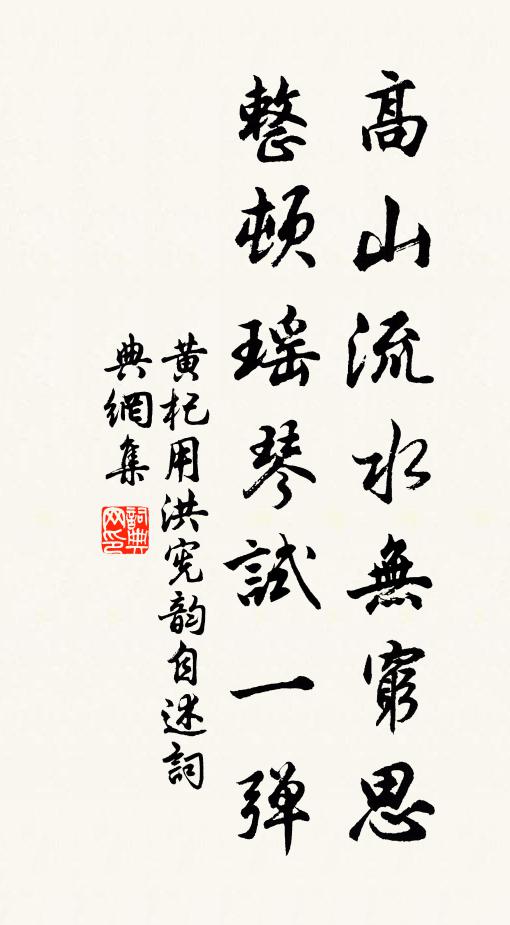 高山流水無窮思
整頓瑶琴試一弹
黄杞用洪宪韵自述詞
典網集
詞典
网印